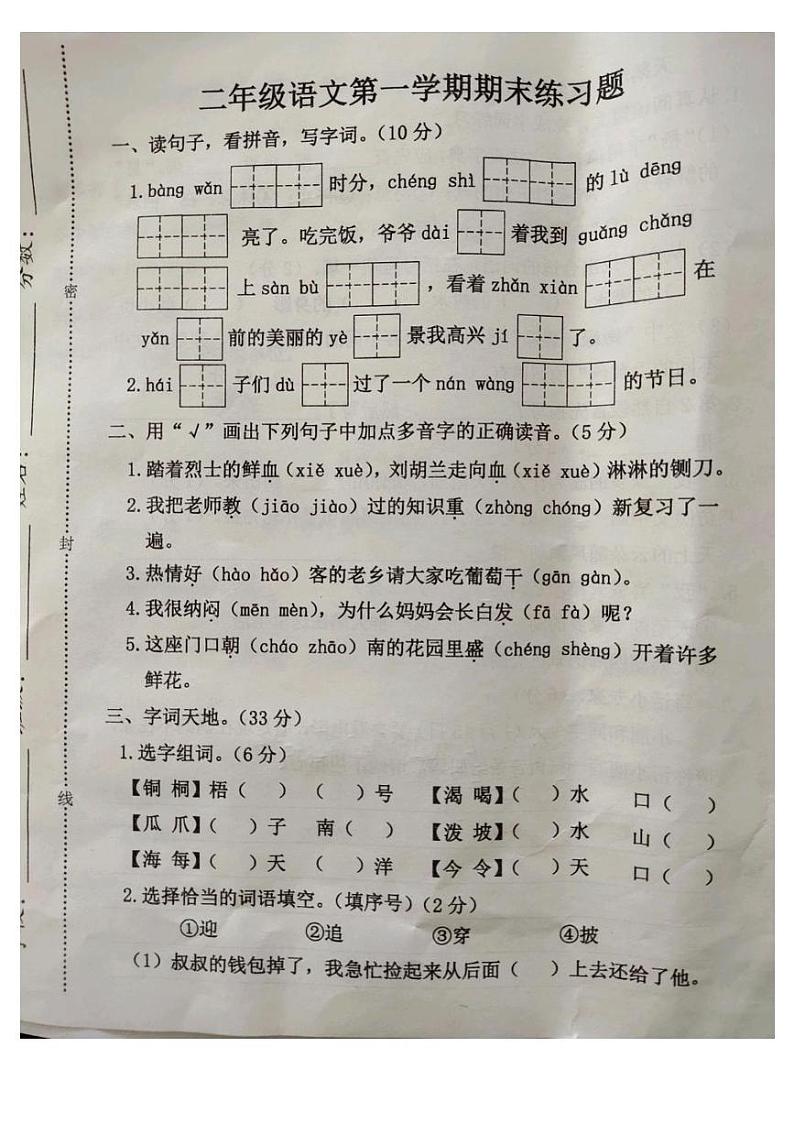 二年级语文第一学期期末练习题
一、读句子，看拼音，写字词。（10 分）
1. bàng wǎn 时分，chéng shì 的 lù dēng
亮了。吃完饭，爷爷 dài 着我到 guǎng chǎng
上 sàn bù ，看着 zhǎn xiàn 在
yǎn 前的美丽的 yè 景我高兴 jí 了。
2. hái 子们 dù 过了一个 nán wàng 的节日。
二、用“√”画出下列句子中加点多音字的正确读音。（5 分）
1. 踏着烈士的鲜血（xiě xuè），刘胡兰走向血（xiě xuè）淋淋的铡刀。
2. 我把老师教（jiāo jiào）过的知识重（zhòng chóng）新复习了一
遍。
3. 热情好（hào hǎo）客的老乡请大家吃葡萄干（gān gàn）。
4. 我很纳闷（mēn mèn），为什么妈妈会长白发（fā fà）呢？
5. 这座门口朝（cháo zhāo）南的花园里盛（chéng shèng）开着许多
鲜花。
三、字词天地。（33 分）
1. 选字组词。（6 分）
【铜 桐】梧（ ） （ ）号 【渴 喝】（ ）水 口（ ）
【瓜 爪】（ ）子 南（ ） 【泼 坡】（ ）水 山（ ）
【海 每】（ ）天 （ ）洋 【今 令】（ ）天 口（ ）
2. 选择恰当的词语填空。（填序号）（2 分）
①迎 ②追 ③穿 ④披
（1）叔叔的钱包掉了，我急忙捡起来从后面（ ）上去还给了他。
密
封
线